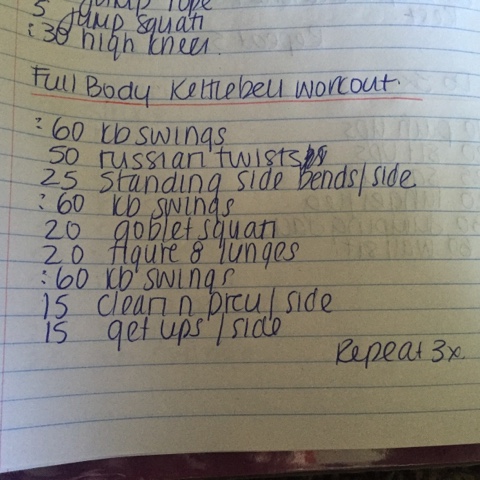 5 jump rope
jump squat
:30 high knees.
Full Body Kettlebell workout.
:60 kb swings
50 russian twists
25 standing side bends/side
:60 kb swings
20 goblet squat
20 figure 8 lunges
:60 kb swings
15 clean n press/side
15 get ups/side
Repeat 3x.